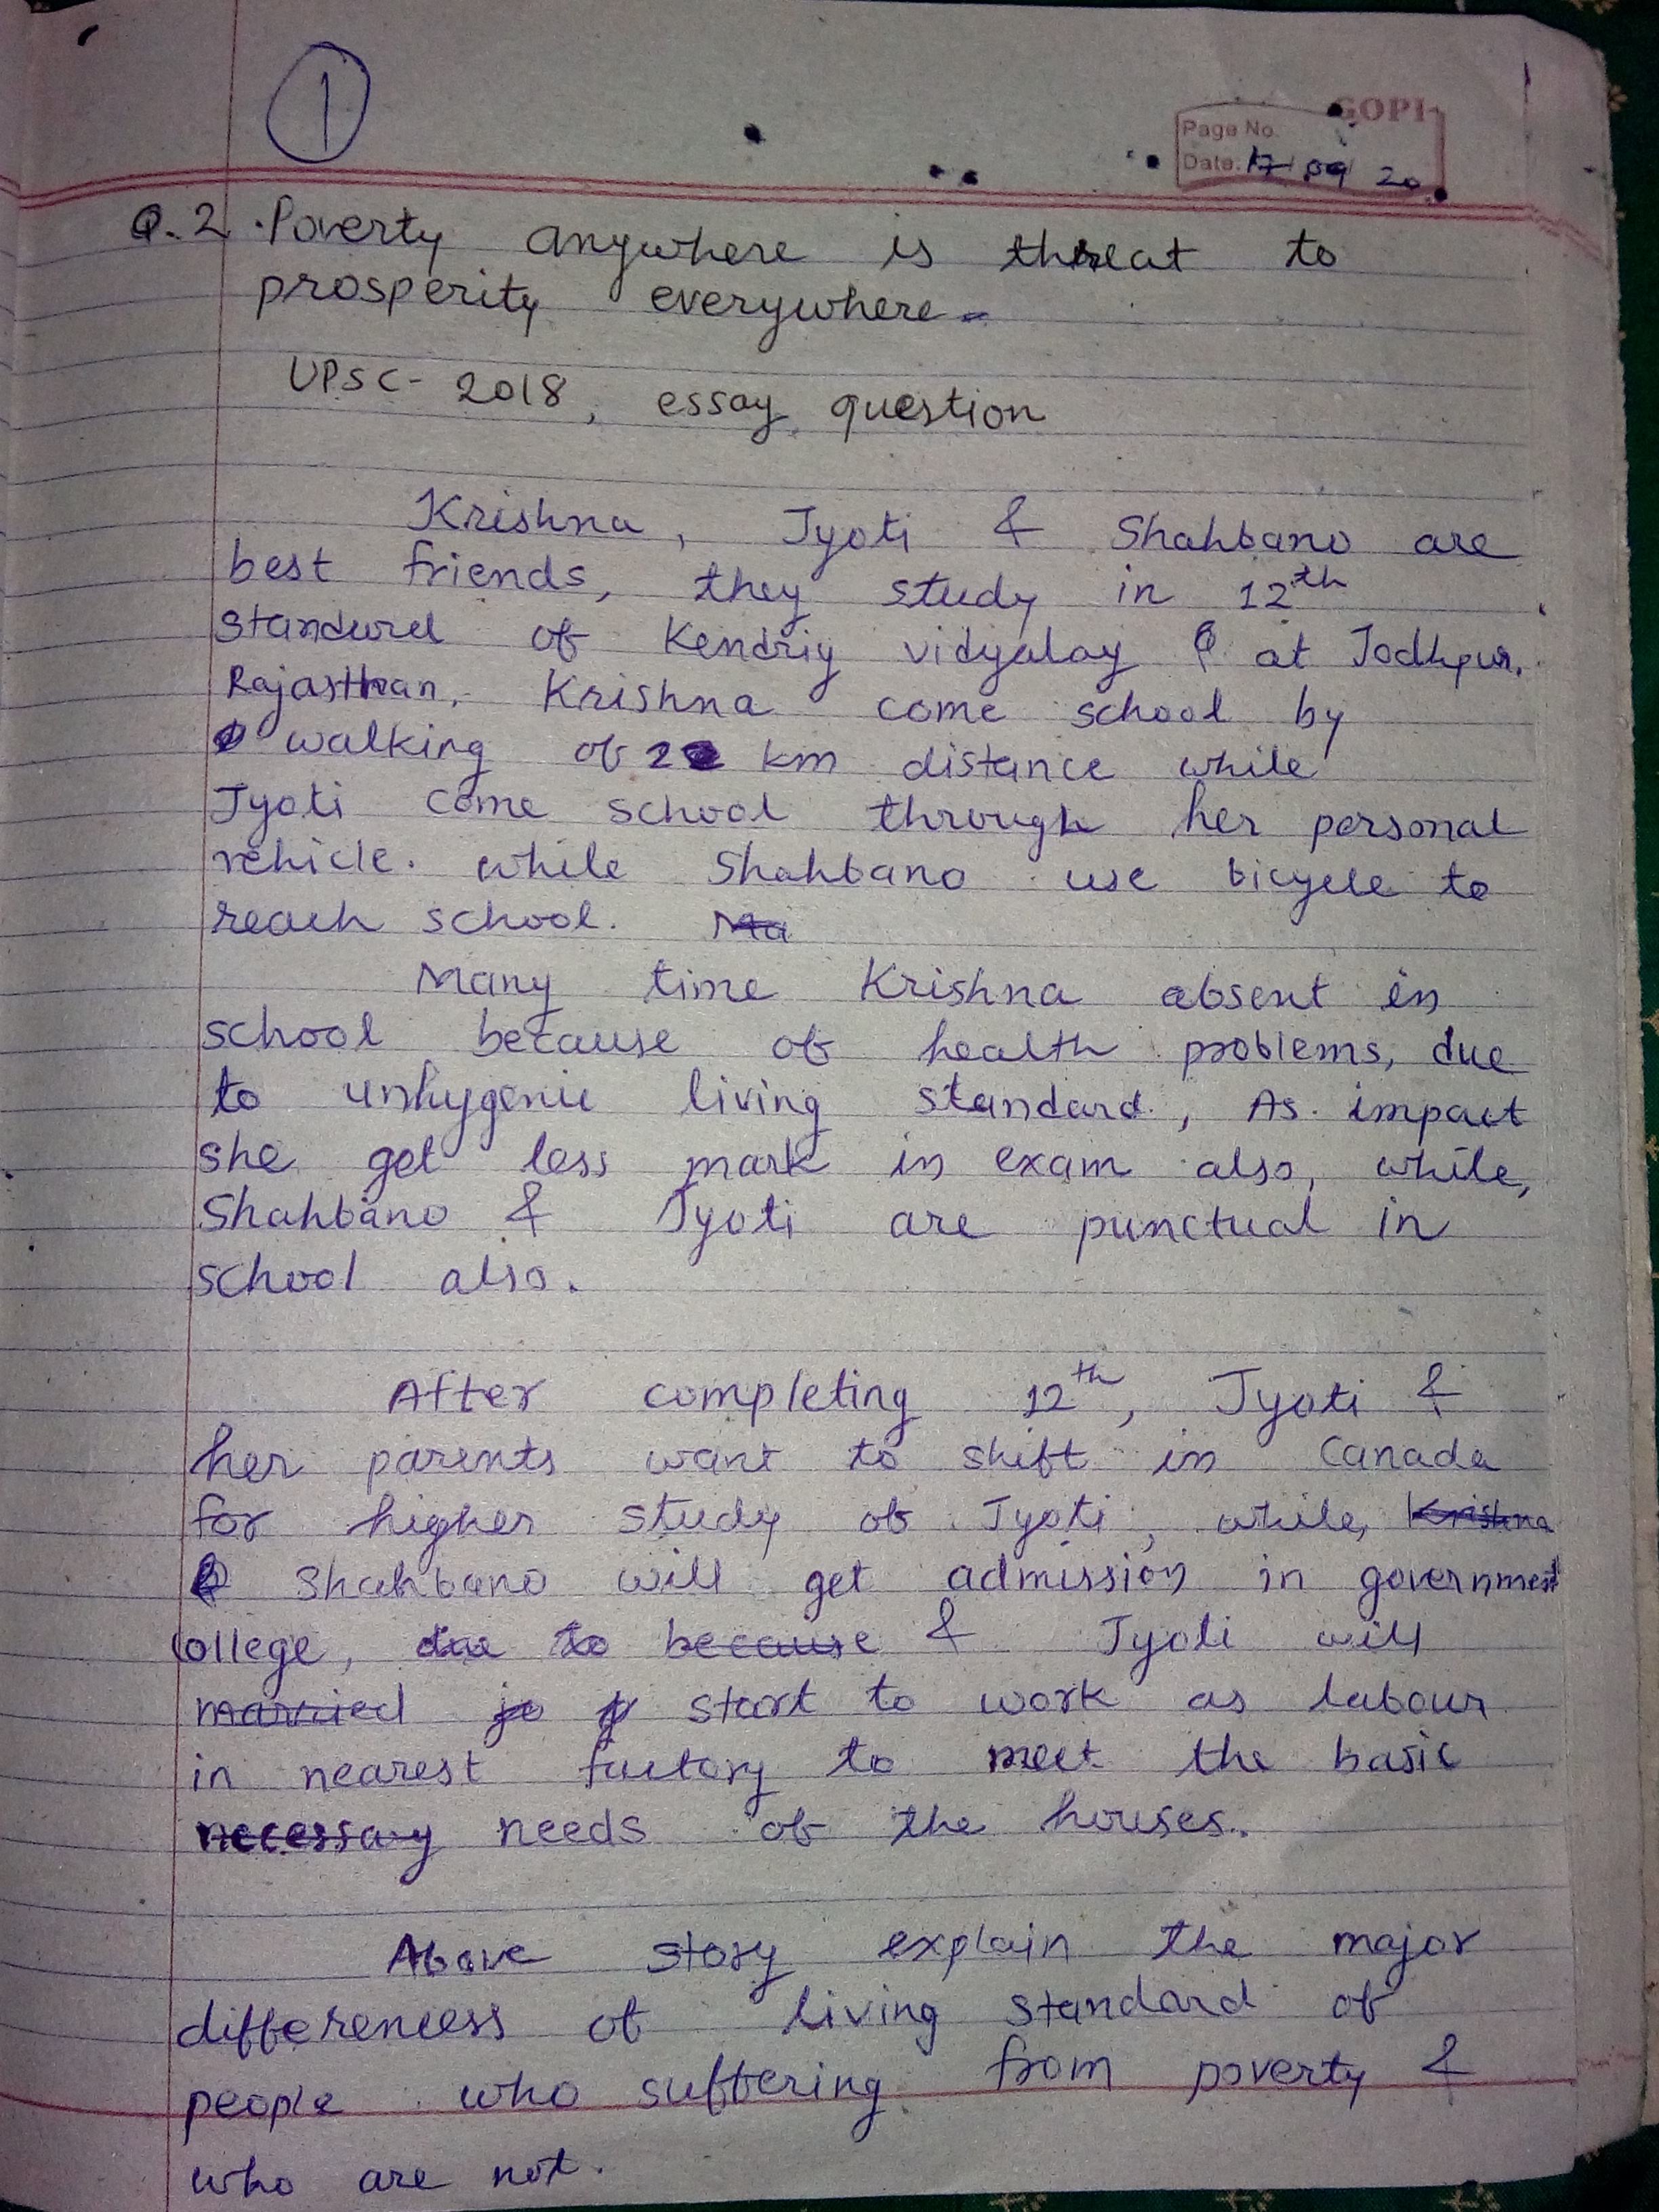 1
GOPI
Page No.
Date. 17/09/20
Q.2. Poverty anywhere is threat to
prosperity everywhere.
UPSC- 2018, essay question
Krishna, Jyoti & Shahbano are
best friends, they study in 12th
standurd of Kendriy vidyalay at Jodhpur.
Rajasthan. Krishna come school by
walking of 2 km distance while
Jyoti come school through her personal
vehicle. while Shahbano use bicycle to
reach school. Ma
Many time Krishna absent in
school because of health problems, due
to unhygenic living standard, As impact
she get less mark in exam also, while,
Shahbano & Jyoti are punctual in
school also.
After completing 12th, Jyoti &
her parents want to shift in Canada
for higher study of Jyoti, while, Krishna
& Shahbano will get admission in government
College, due to because & Jyoti will
married start to work as labour
in nearest factory to meet the basic
necessary needs of the houses.
Above story explain the major
differencess of living standard of
people who suffering from poverty &
who are not.